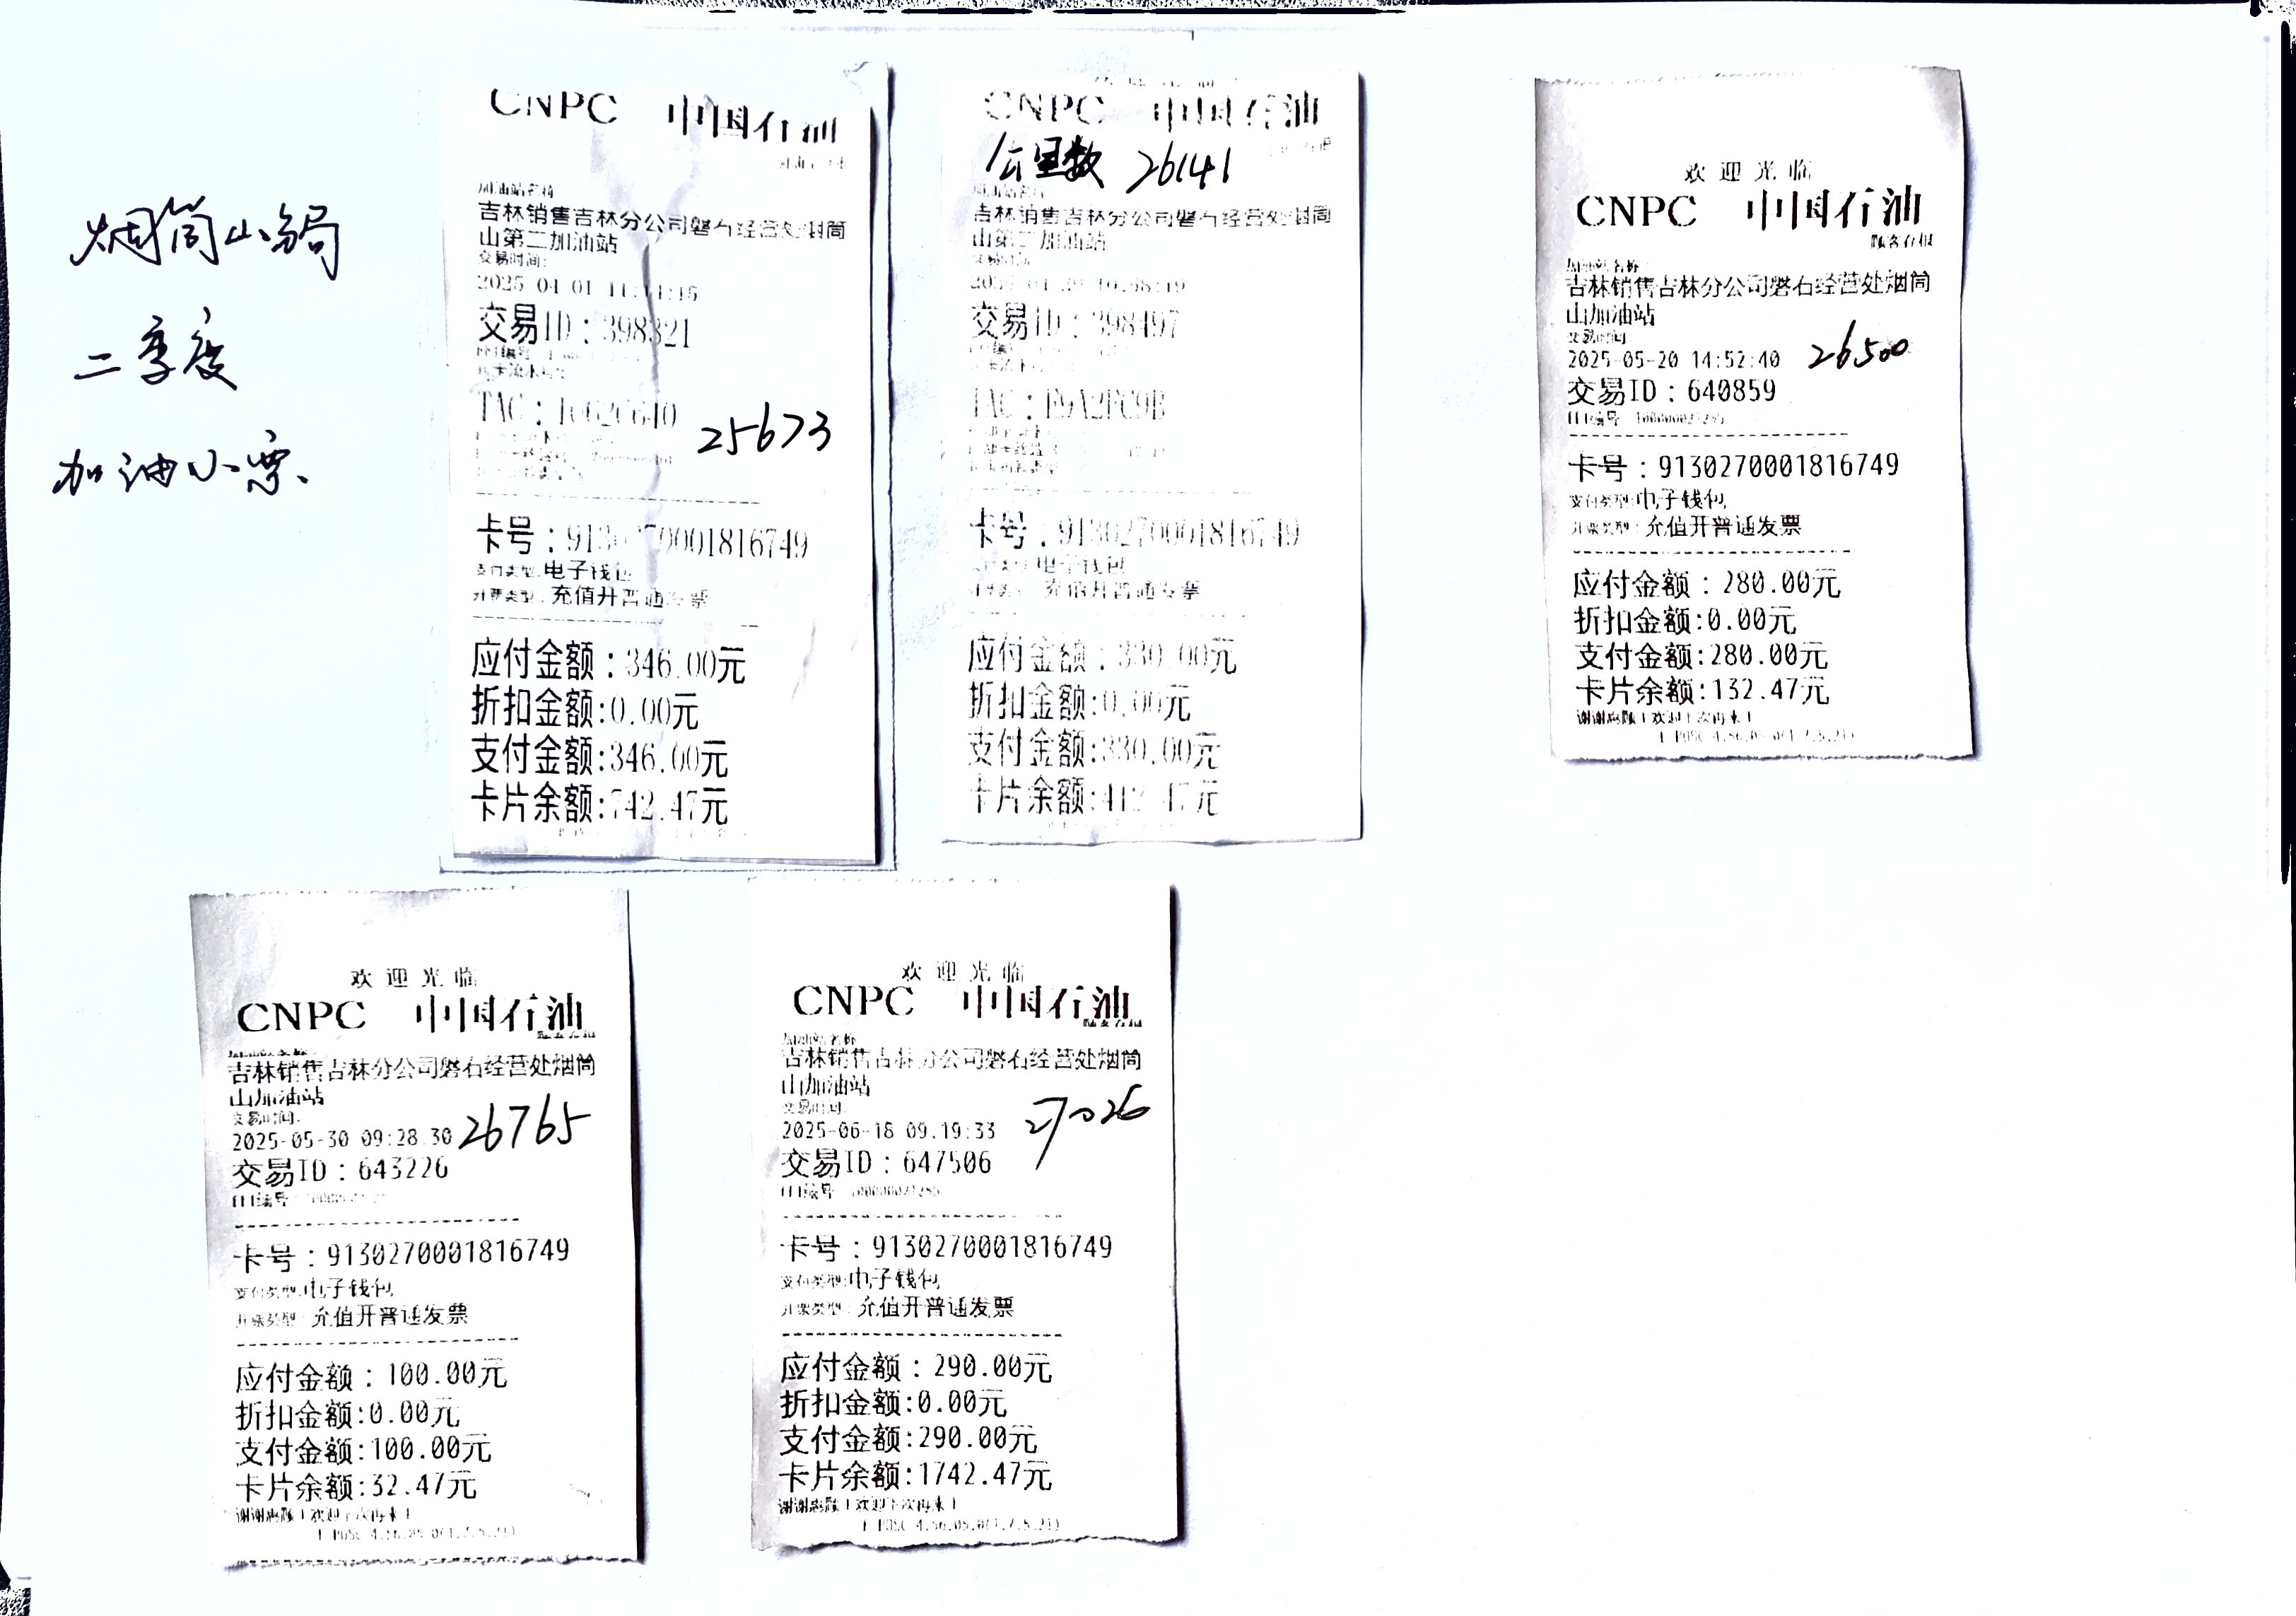 烟筒山锅
二季度
加油小票、
CNPC 中国石油
加油站名称
吉林销售吉林分公司磐石经营处烟筒
山第二加油站
交易时间:
2025-04-01
交易ID：398321
25673
卡号：9130270001816749
支付类型:电子钱包
开票类型：充值开普通发票
应付金额：346.00元
折扣金额:0.00元
支付金额:346.00元
卡片余额:742.47元
CNPC 中国石油
公里数 26141
吉林销售吉林分公司磐石经营处烟筒
山第二加油站
交易时间:
交易ID：398497
TAC：F9A2FC9B
卡号：9130270001816749
支付类型:电子钱包
开票类型：充值开普通发票
应付金额：330.00元
折扣金额:0.00元
支付金额:330.00元
卡片余额:412.47元
欢迎光临
CNPC 中国石油
顾客存根
加油站名称
吉林销售吉林分公司磐石经营处烟筒
山加油站
交易时间
2025-05-20 14:52:40 26500
交易ID：640859
卡号：9130270001816749
支付类型:电子钱包
开票类型：充值开普通发票
应付金额：280.00元
折扣金额:0.00元
支付金额:280.00元
卡片余额:132.47元
谢谢惠顾！欢迎下次再来！
欢迎光临
CNPC 中国石油
顾客存根
吉林销售吉林分公司磐石经营处烟筒
山加油站
交易时间:
2025-05-30 09:28:30 26765
交易ID：643226
卡号：9130270001816749
支付类型:电子钱包
开票类型：充值开普通发票
应付金额：100.00元
折扣金额:0.00元
支付金额:100.00元
卡片余额:32.47元
谢谢惠顾！欢迎下次再来！
欢迎光临
CNPC 中国石油
顾客存根
加油站名称
吉林销售吉林分公司磐石经营处烟筒
山加油站
交易时间:
2025-06-18 09:19:33 27026
交易ID：647506
卡号：9130270001816749
支付类型:电子钱包
开票类型：充值开普通发票
应付金额：290.00元
折扣金额:0.00元
支付金额:290.00元
卡片余额:1742.47元
谢谢惠顾！欢迎下次再来！